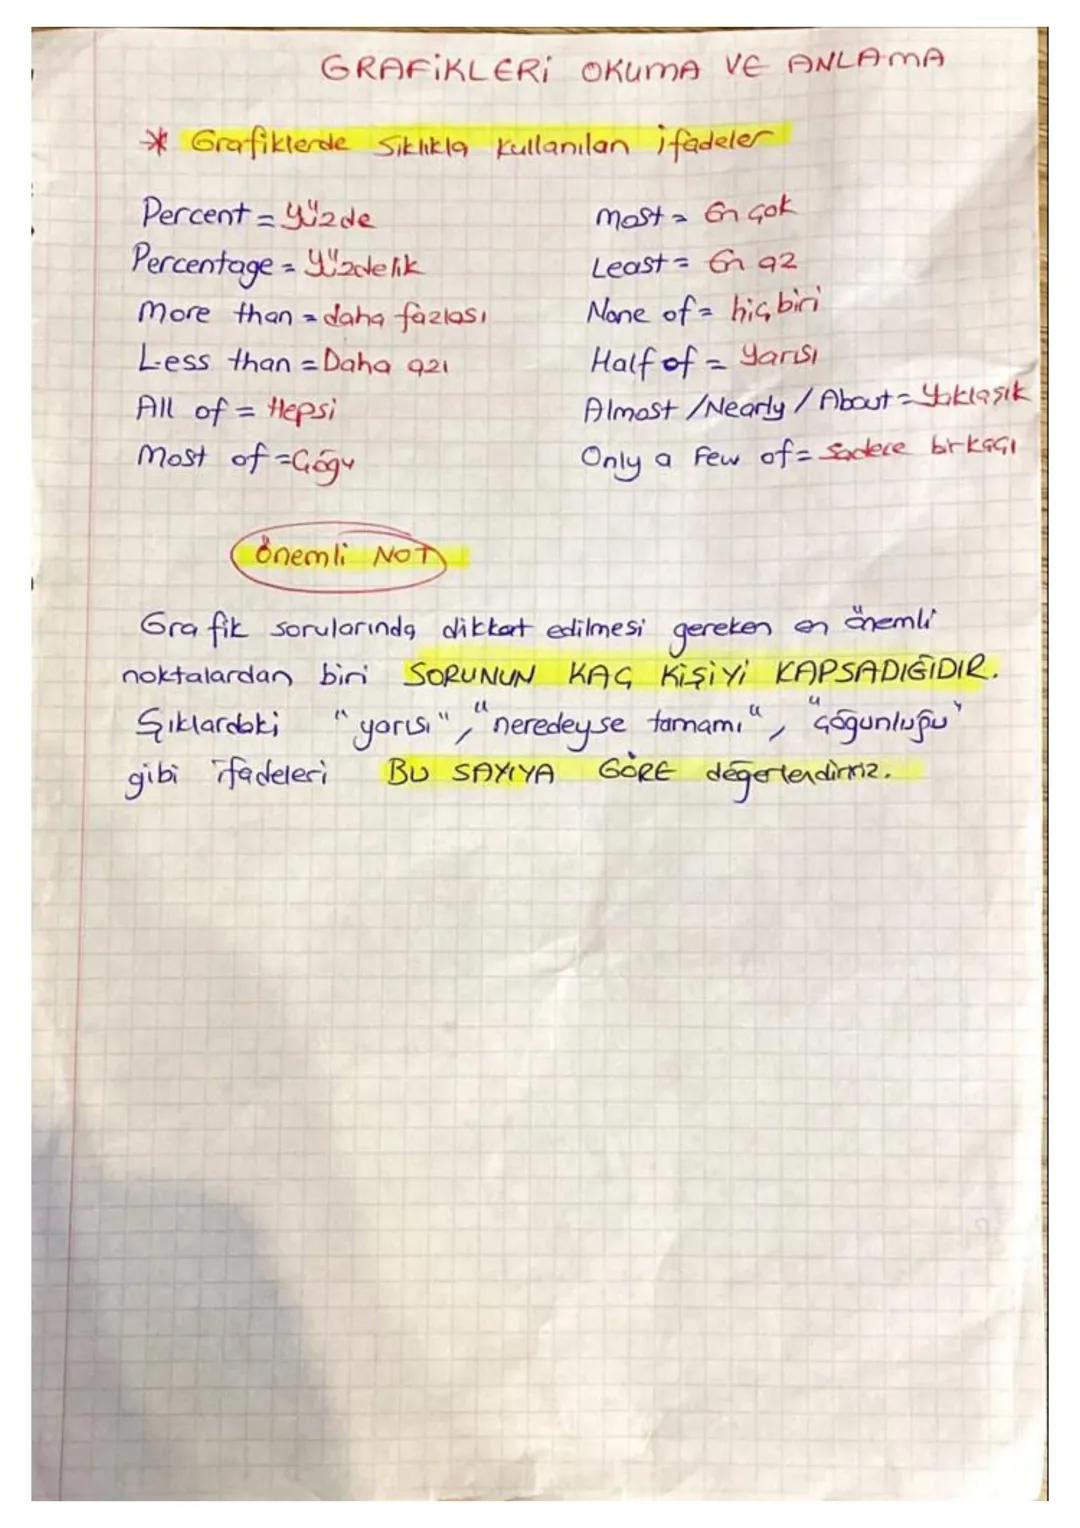 GRAFİKLERİ OKUMA VE ANLAMA
* Grafiklerde Sıklıkla Kullanılan İfadeler
Percent = Yüzde
Percentage = Yüzdelik
More than = daha fazlası
Less than = Daha azı
All of = Hepsi
Most of = Çoğu
Most = En çok
Least = En az
None of = hiç biri
Half of = Yarısı
Almost / Nearly / About = Yaklaşık
Only a Few of = Sadece birkaçı
Önemli NOT
Grafik sorularında dikkat edilmesi gereken en önemli
noktalardan biri SORUNUN KAÇ KİŞİYİ KAPSADIĞIDIR.
Şıklardaki "yarısı", "neredeyse tamamı", "çoğunluğu"
gibi ifadeleri BU SAYIYA GÖRE değerlendiririz.